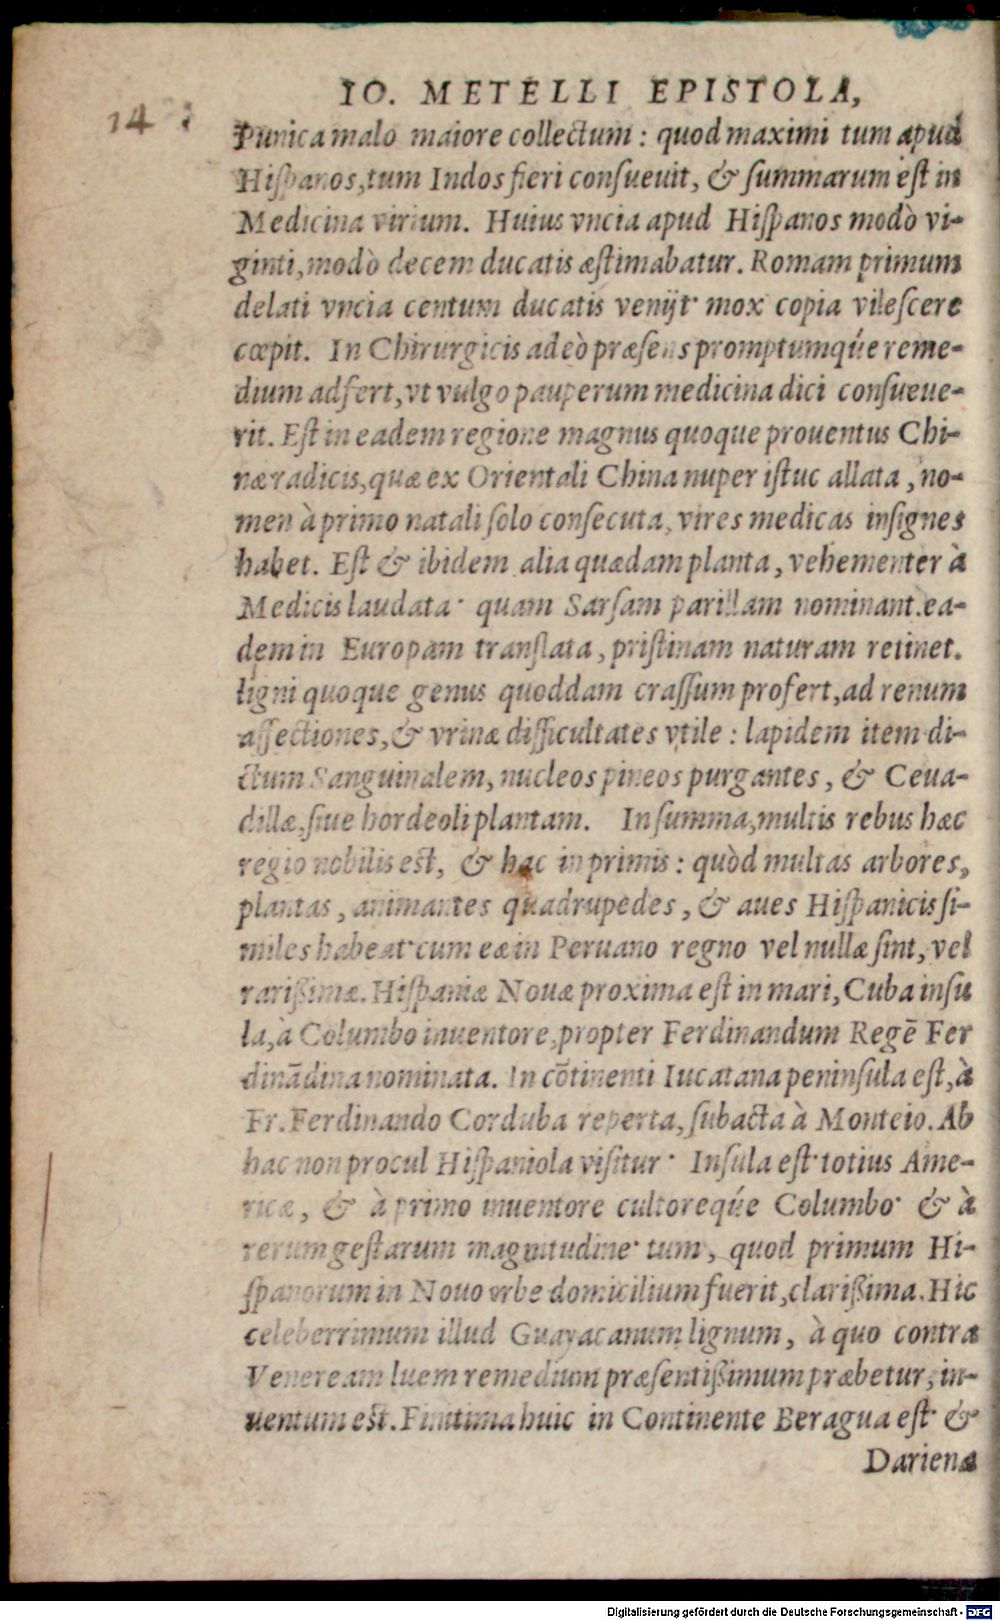 IO. METELLI EPISTOLA,
14
Punica malo maiore collectum : quod maximi tum apud
Hiſpanos, tum Indos fieri conſueuit, & ſummarum eſt in
Medicina virium. Huius vncia apud Hiſpanos modò vi-
ginti, modò decem ducatis æſtimabatur. Romam primum
delati vncia centum ducatis venijt· mox copia vileſcere
cœpit. In Chirurgicis adeò præſens promptumq́ue reme-
dium adfert, vt vulgo pauperum medicina dici conſueue-
rit. Eſt in eadem regione magnus quoque prouentus Chi-
næ radicis, quæ ex Orientali China nuper iſtuc allata, no-
men à primo natali ſolo conſecuta, vires medicas inſignes
habet. Eſt & ibidem alia quædam planta, vehementer à
Medicis laudata· quam Sarſam parillam nominant. ea-
dem in Europam translata, priſtinam naturam retinet.
ligni quoque genus quoddam craſſum profert, ad renum
affectiones, & vrinæ difficultates vtile : lapidem item di-
ctum Sanguinalem, nucleos pineos purgantes, & Ceua-
dillæ, ſiue hordeoli plantam. In ſumma, multis rebus hæc
regio nobilis est, & hac in primis : quòd multas arbores,
plantas, animantes quadrupedes, & aues Hiſpanicis ſi-
miles habeat· cum eæ in Peruano regno vel nullæ ſint, vel
rarißimæ. Hiſpaniæ Nouæ proxima eſt in mari, Cuba inſu
la, à Columbo inuentore, propter Ferdinandum Regē Fer
dinādina nominata. In cōtinenti Iucatana peninſula eſt, à
Fr. Ferdinando Corduba reperta, ſubacta à Monteio. Ab
hac non procul Hiſpaniola viſitur· Inſula eſt· totius Ame-
ricæ, & à primo inuentore cultoreq́ue Columbo· & à
rerum geſtarum magnitudine· tum, quod primum Hi-
ſpanorum in Nouo orbe domicilium fuerit, clarißima. Hic
celeberrimum illud Guayacanum lignum, à quo contra
Veneream luem remedium præſentißimum præbetur, in-
uentum est. Finitima huic in Continente Beragua eſt· &
Dariena
Digitalisierung gefördert durch die Deutsche Forschungsgemeinschaft - DFG